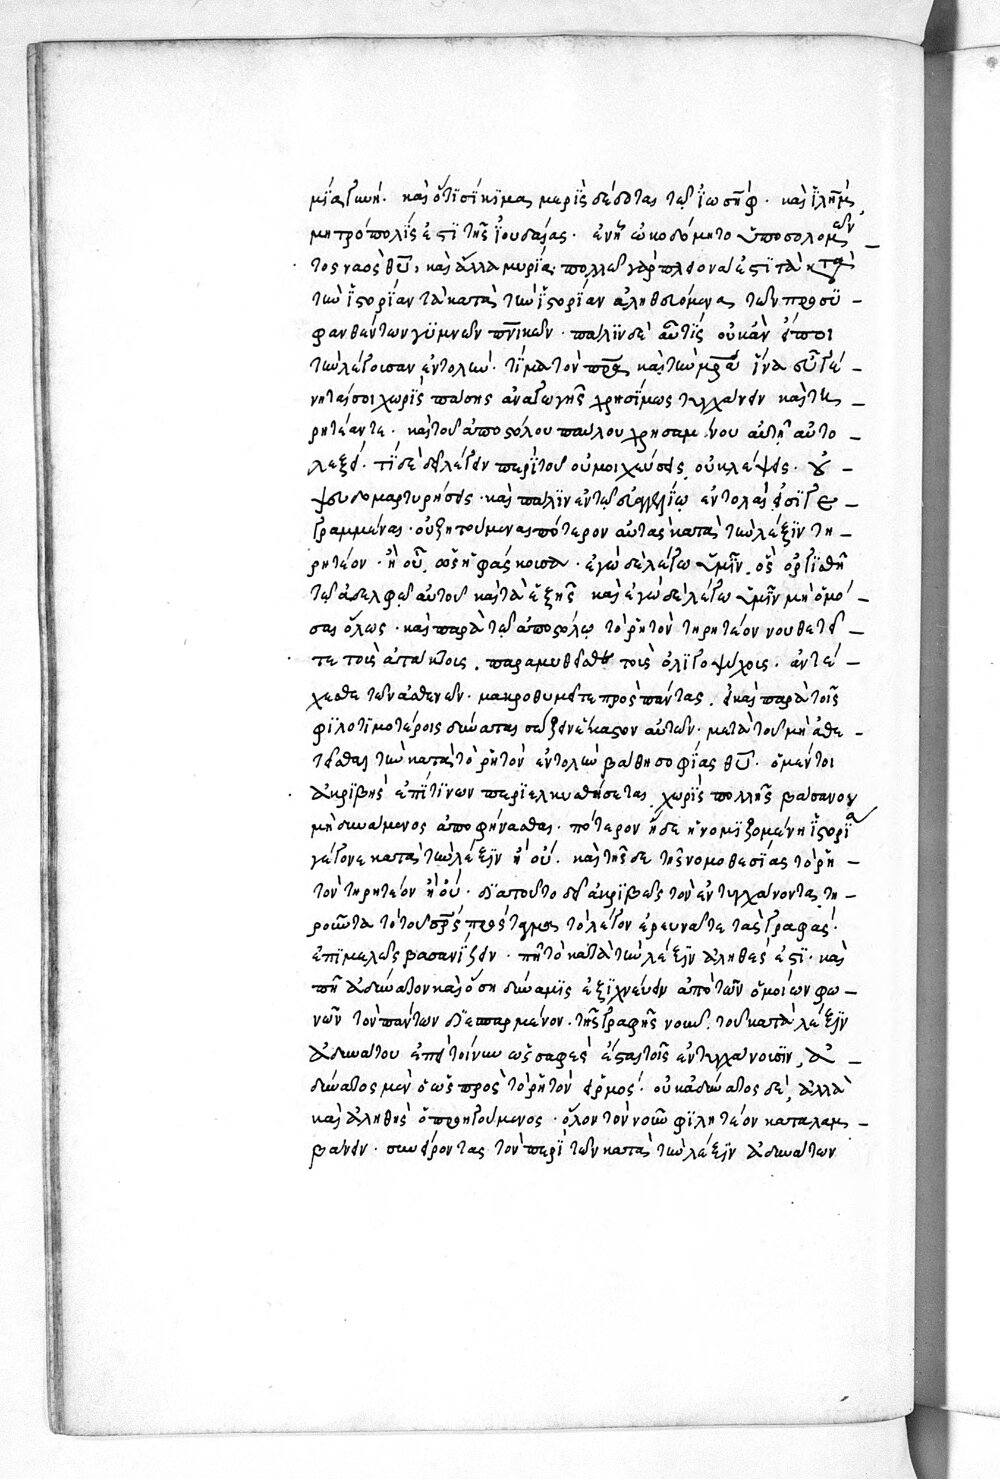 μία γυνή. καὶ ὅτι σίκιμα μερὶς δέδοται τῶ ἰωσήφ. καὶ ἱλῆμ
μητρόπολίς ἐστι τῆς ἰουδαίας. ἐν ἧ ὠκοδόμητο ὑπὸ σολομῶν –
τος ναὸς θῦ, καὶ ἄλλα μυρία. πολλῶ γὰρ πλείονα ἐστὶ τὰ κατὰ
τὴν ἱστορίαν τὰ κατὰ τὴν ἱστορίαν ἀληθευόμενα, τῶν προσυ –
φανθέντων γυμνῶν πνικῶν. πάλιν δὲ αὖ τίς οὐκ ἂν εἴποι
τὴν λέγουσαν ἐντολήν. τίμα τὸν πρα καὶ τὴν μρα ἵνα εὖ γέ –
νηταί σοι χωρὶς πάσης ἀναγωγῆς χρησίμως τυγχάνειν καὶ τη –
ρητέαν τε. καὶ τοῦ ἀποστόλου παύλου χρησαμένου αὐτῆ αὐτο –
λεξεί. τί δὲ δεῖ λέγειν περὶ τοῦ οὐ μοιχεύσεις, οὐ κλέψεις. οὐ –
ψευδομαρτυρήσεις. καὶ πάλιν ἐν τῶ εὐαγγελίω ἐντολαί εἰσι γε –
γραμμέναι. οὐ ζητούμεναι πότερον αὐτὰς κατὰ τὴν λέξιν τη –
ρητέον. ἢ οὔ. ὡς ἡ φάσκουσα. ἐγὼ δὲ λέγω ὑμῖν, ὃς ὀργισθῆ
τῶ ἀδελφῶ αὐτοῦ καὶ τὰ ἑξῆς καὶ ἐγὼ δὲ λέγω ὑμῖν μὴ ὀμό –
σαι ὅλως. καὶ παρὰ τῶ ἀποστόλω τὸ ῥητὸν τηρητέον νουθετεῖ –
τε τοὺς ἀτάκτοις. παραμυθεῖσθε τοὺς ὀλιγοψύχοις. ἀντέ –
χεσθε τῶν ἀσθενῶν. μακροθυμεῖτε πρὸς πάντας. εἰ καὶ παρὰ τοῖς
φιλοτιμοτέροις δύναται σώζειν ἕκαστον αὐτῶν. μετὰ τοῦ μὴ ἀθε –
τεῖσθαι τὴν κατὰ τὸ ῥητὸν ἐντολὴν βάθη σοφίας θῦ. ὁ μέντοι
ἀκριβὴς ἐπί τινων περιελκυσθήσεται, χωρὶς πολλῆς βασάνου
μὴ δυνάμενος ἀποφήνασθαι. πότερον ἥδε ἡ νομιζομένη ἱστορία
γέγονε κατὰ τὴν λέξιν ἢ οὐ. καὶ τῆσδε τῆς νομοθεσίας τὸ ῥη –
τὸν τηρητέον ἢ οὐ. διὰ τοῦτο δεῖ ἀκριβῶς τὸν ἐντυγχάνοντα, τη –
ροῦντα τὸ τοῦ σρς πρόσταγμα τὸ λέγον ἐρευνᾶτε τὰς γραφάς.
ἐπιμελῶς βασανίζειν. πῆ τὸ κατὰ τὴν λέξιν ἀληθές ἐστι. καὶ
πῆ ἀδύνατον καὶ ὅση δύναμις ἐξιχνεύειν ἀπὸ τῶν ὁμοίων φω –
νῶν τὸν πάντων διεσπαρμένον. τῆς γραφῆς νοῦν. τοῦ κατὰ λέξιν
ἀδυνάτου ἐπεὶ τοίνυν ὡς σαφὲς ἔσται τοῖς ἐντυγχάνουσιν, ἀ –
δύνατος μὲν ὁ ὡς πρὸς τὸ ῥητὸν εἱρμός. οὐκ ἀδύνατος δὲ, ἀλλὰ
καὶ ἀληθὴς ὁ προηγούμενος. ὅλον τὸν νοῦν φιλητέον καταλαμ –
βάνειν. συνείροντας τὸν περὶ τῶν κατὰ τὴν λέξιν ἀδυνάτων